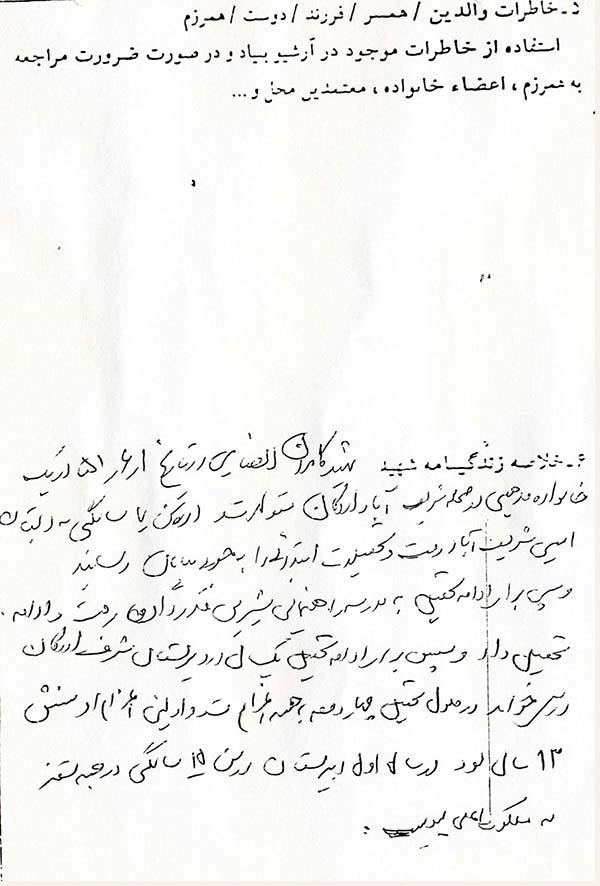 ۵- خاطرات والدین / همسر / فرزند / دوست / همرزم
استفاده از خاطرات موجود در آرشیو بنیاد و در صورت ضرورت مراجعه
به همرزم ، اعضاء خانواده ، معتمدین محل و ...
۶- خلاصه زندگینامه شهید شهید کامران در تاریخ ۵۱/۶/۱ در یک
خانواده مذهبی در محله شریف آباد اردکان متولد شد در سن سالگی به دبستان
شریف آباد رفت و تحصیلات ابتدائی را به پایان رسانید
و سپس برای ادامه تحصیل به مدرسه راهنمایی رفت و ادامه
تحصیل داد و سپس برای ادامه تحصیل یک سال در دبیرستان شرف اردکان
درس خواند در طول تحصیل چهار دفعه به جبهه اعزام شد و اولین اعزام او سنش
۱۳ سال بود در سال اول دبیرستان در سن ۱۵ سالگی در جبهه
به ملکوت اعلی پیوست .